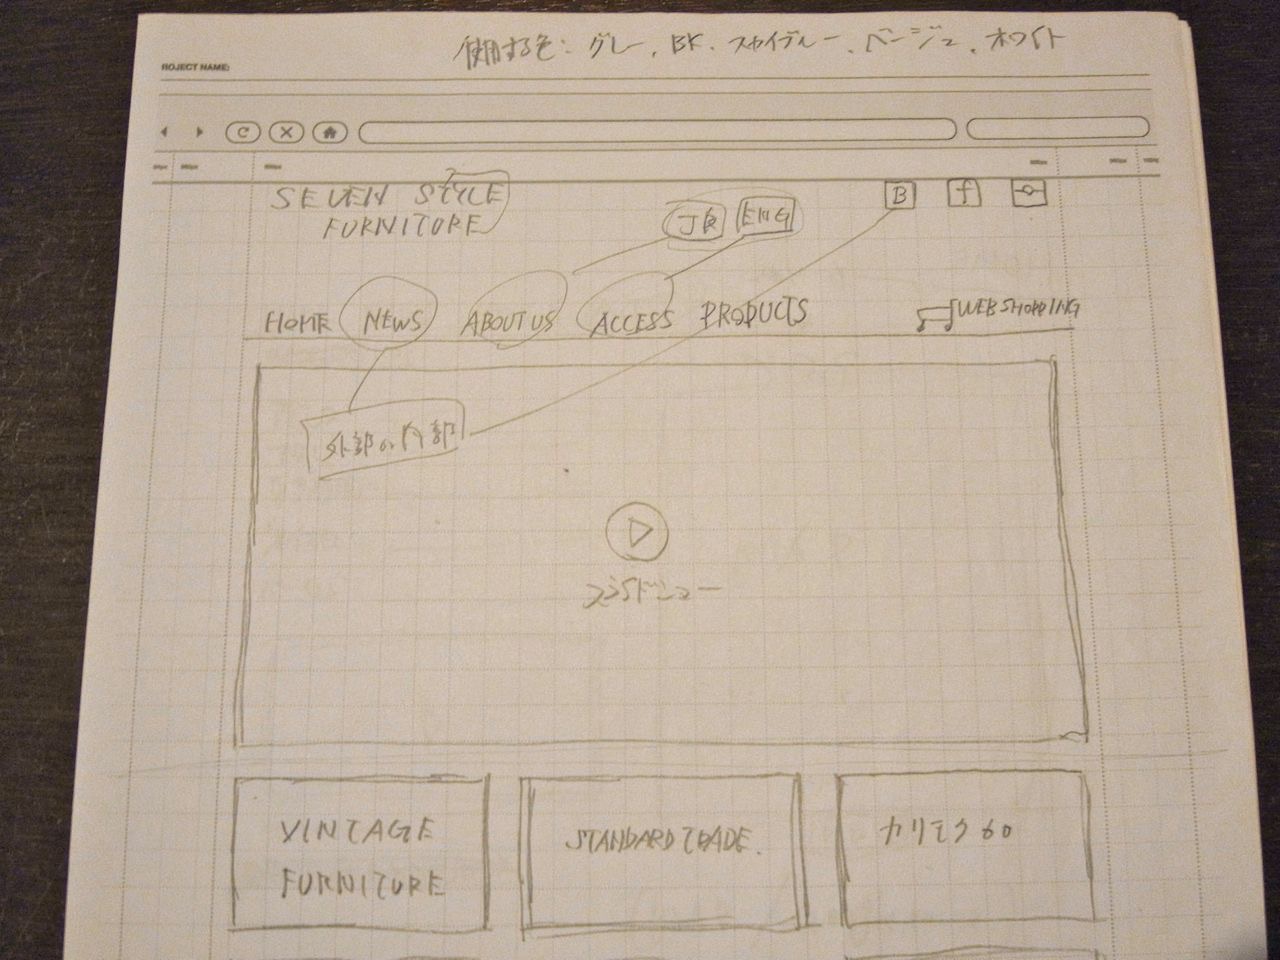 使用する色：グレー、BK、スカイブルー、ベージュ、ホワイト
ROJECT NAME:
SEVEN STYLE
FURNITURE
B f
JP ENG
HOME NEWS ABOUT US ACCESS PRODUCTS WEB SHOPPING
外部の内部
スライドショー
VINTAGE
FURNITURE
STANDARD TRADE.
カリモク60